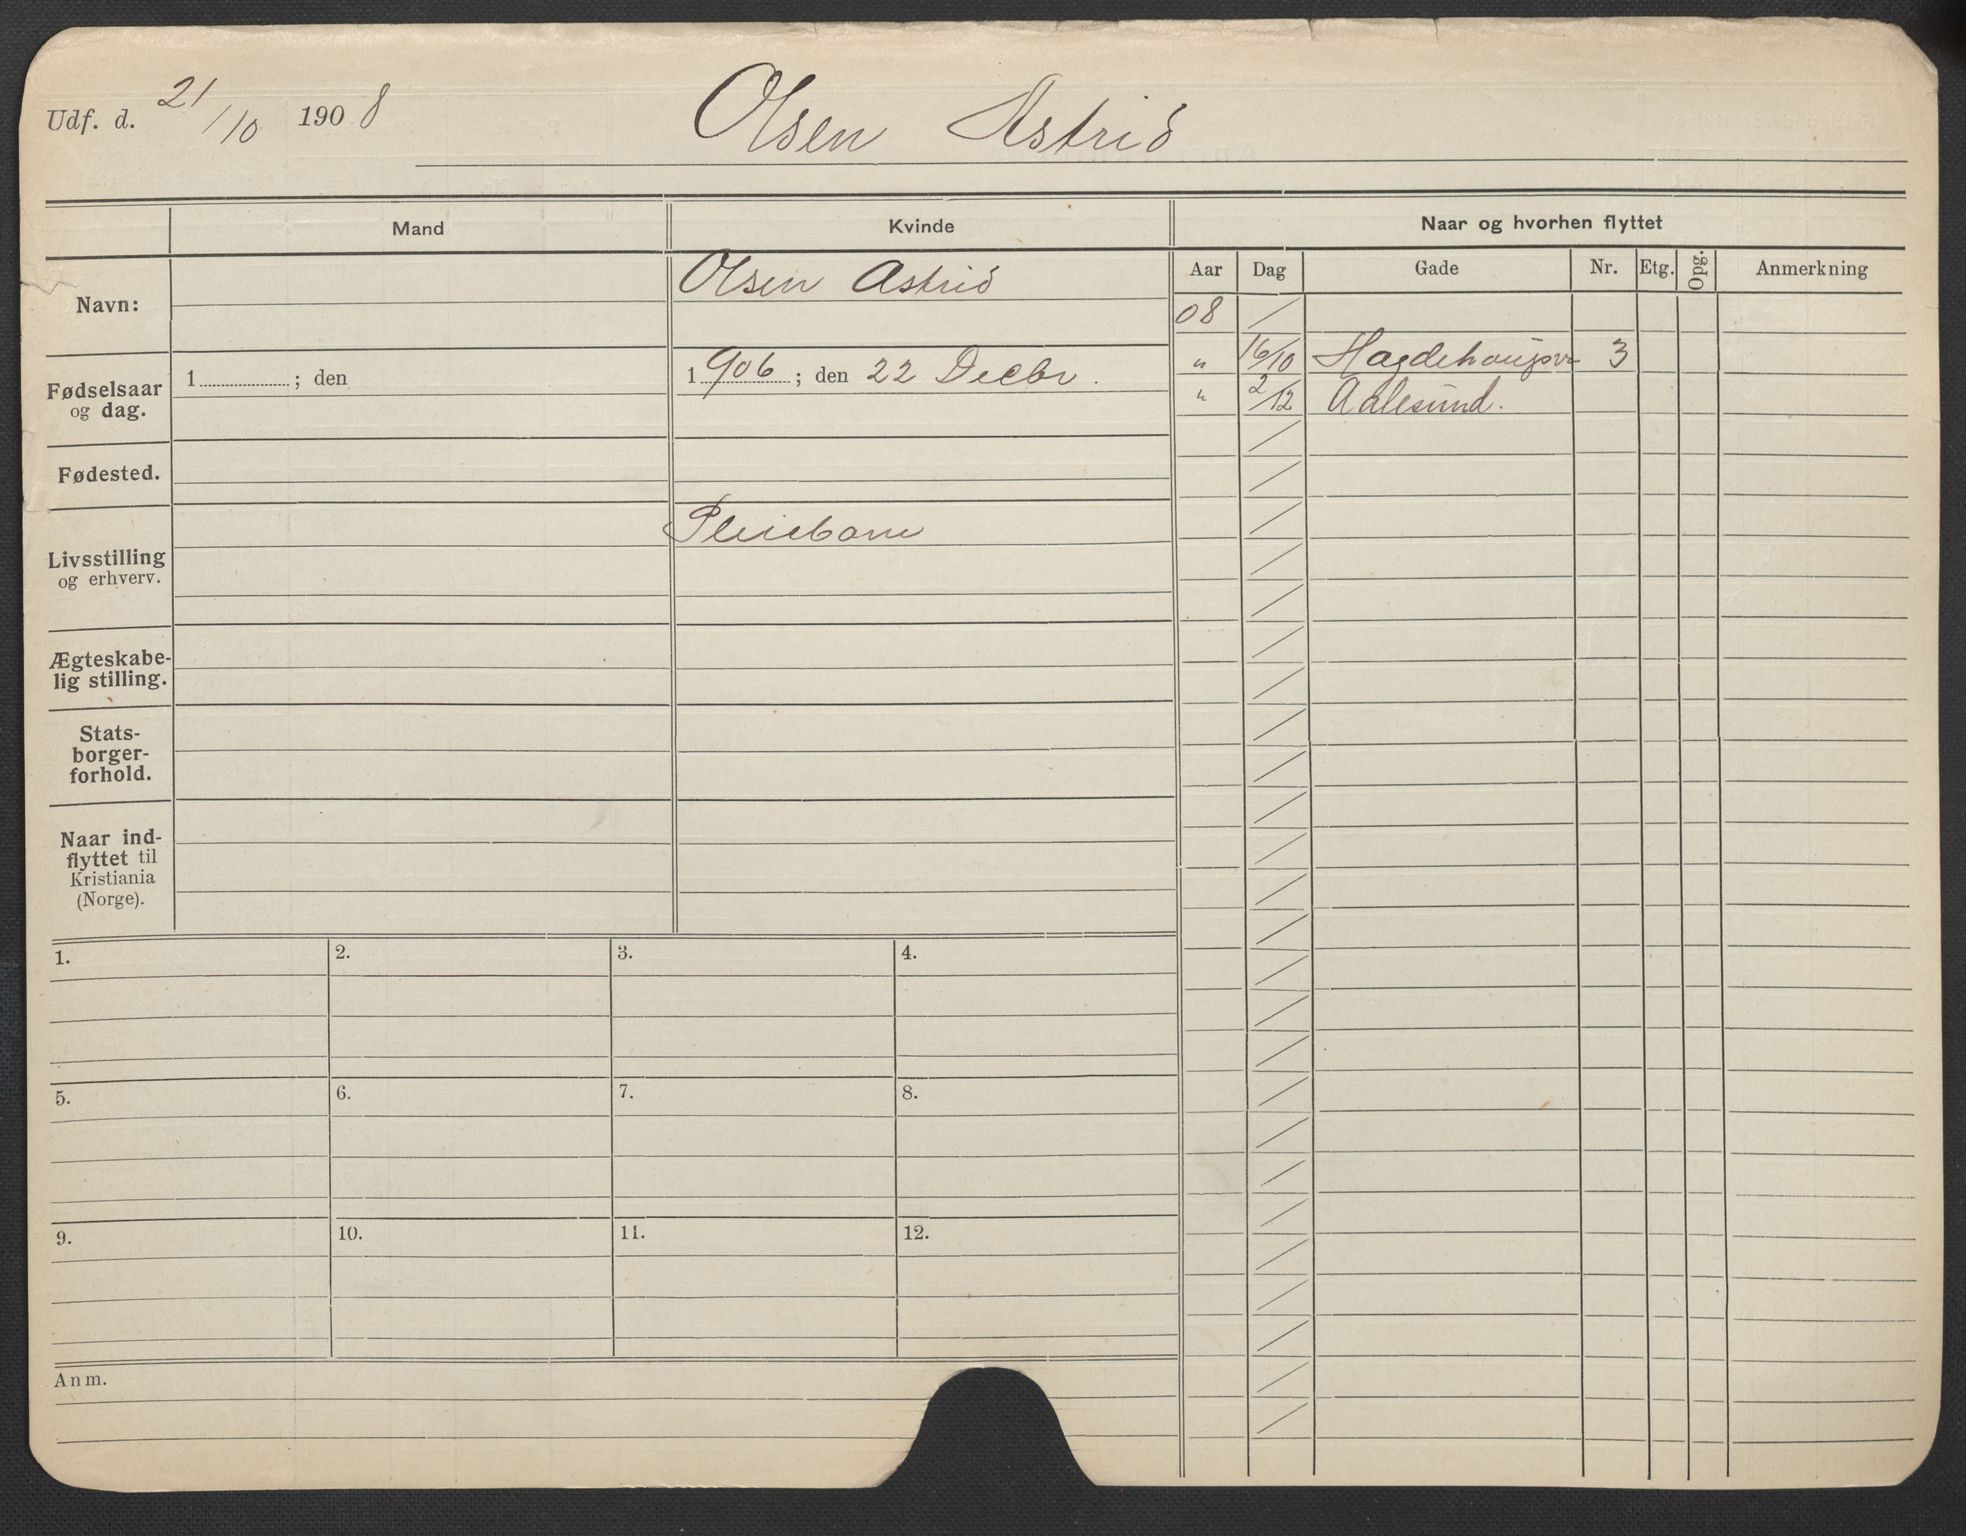 Udf. d. 21/10 1908 Olsen Astrid
Mand Kvinde Naar og hvorhen flyttet
Aar Dag Gade Nr. Etg. Opg. Anmerkning
Navn: Olsen Astrid
08 /
Fødselsaar
og dag.
1 ; den
1 906 ; den 22 Decbr.
" 16/10 3
" 2/12 Aalesund.
Fødested.
Livsstilling
og erhverv.
Pleiebarn
Ægteskabe-
lig stilling.
Stats-
borger-
forhold.
Naar ind-
flyttet til
Kristiania
(Norge).
1. 2. 3. 4.
5. 6. 7. 8.
9. 10. 11. 12.
Anm.